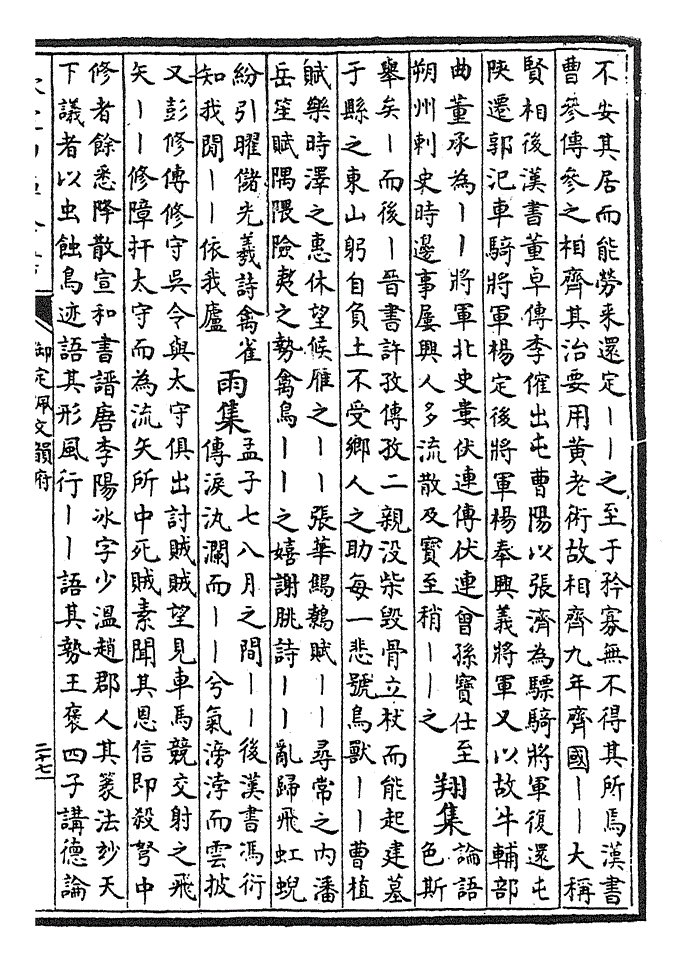 不安其居而能勞来還定丨丨之至于矜寡無不得其所馬漢書
曹參傳參之相齊其治要用黄老術故相齊九年齊國丨丨大稱
賢相後漢書董卓傳李傕出屯曹陽以張濟為驃騎將軍復還屯
陜遷郭汜車騎將軍楊定後將軍楊奉興義將軍又以故牛輔部
曲董承為丨丨將軍北史婁伏連傳伏連曾孫寶仕至
朔州刺史時邊事屢興人多流散及寶至稍丨丨之
翔集
論語
色斯
舉矣丨而後丨晉書許孜傳孜二親没柴毁骨立杖而能起建墓
于縣之東山躬自負土不受鄉人之助每一悲號鳥獸丨丨曹植
賦樂時澤之惠休望候雁之丨丨張華鷦鷯賦丨丨尋常之内潘
岳笙賦隅隈險夷之勢禽鳥丨丨之嬉謝朓詩丨丨亂歸飛虹蜺
紛引曜儲光羲詩禽雀
知我閒丨丨依我廬
雨集
孟子七八月之間丨丨後漢書馮衍
傳淚汍瀾而丨丨兮氣滂浡而雲披
又彭修傳修守吳令與太守俱出討賊賊望見車馬競交射之飛
矢丨丨修障扞太守而為流矢所中死賊素聞其恩信即殺弩中
修者餘悉降散宣和書譜唐李陽冰字少溫趙郡人其篆法妙天
下議者以虫蝕鳥迹語其形風行丨丨語其勢王褒四子講德論
御定佩文韻府
二十七